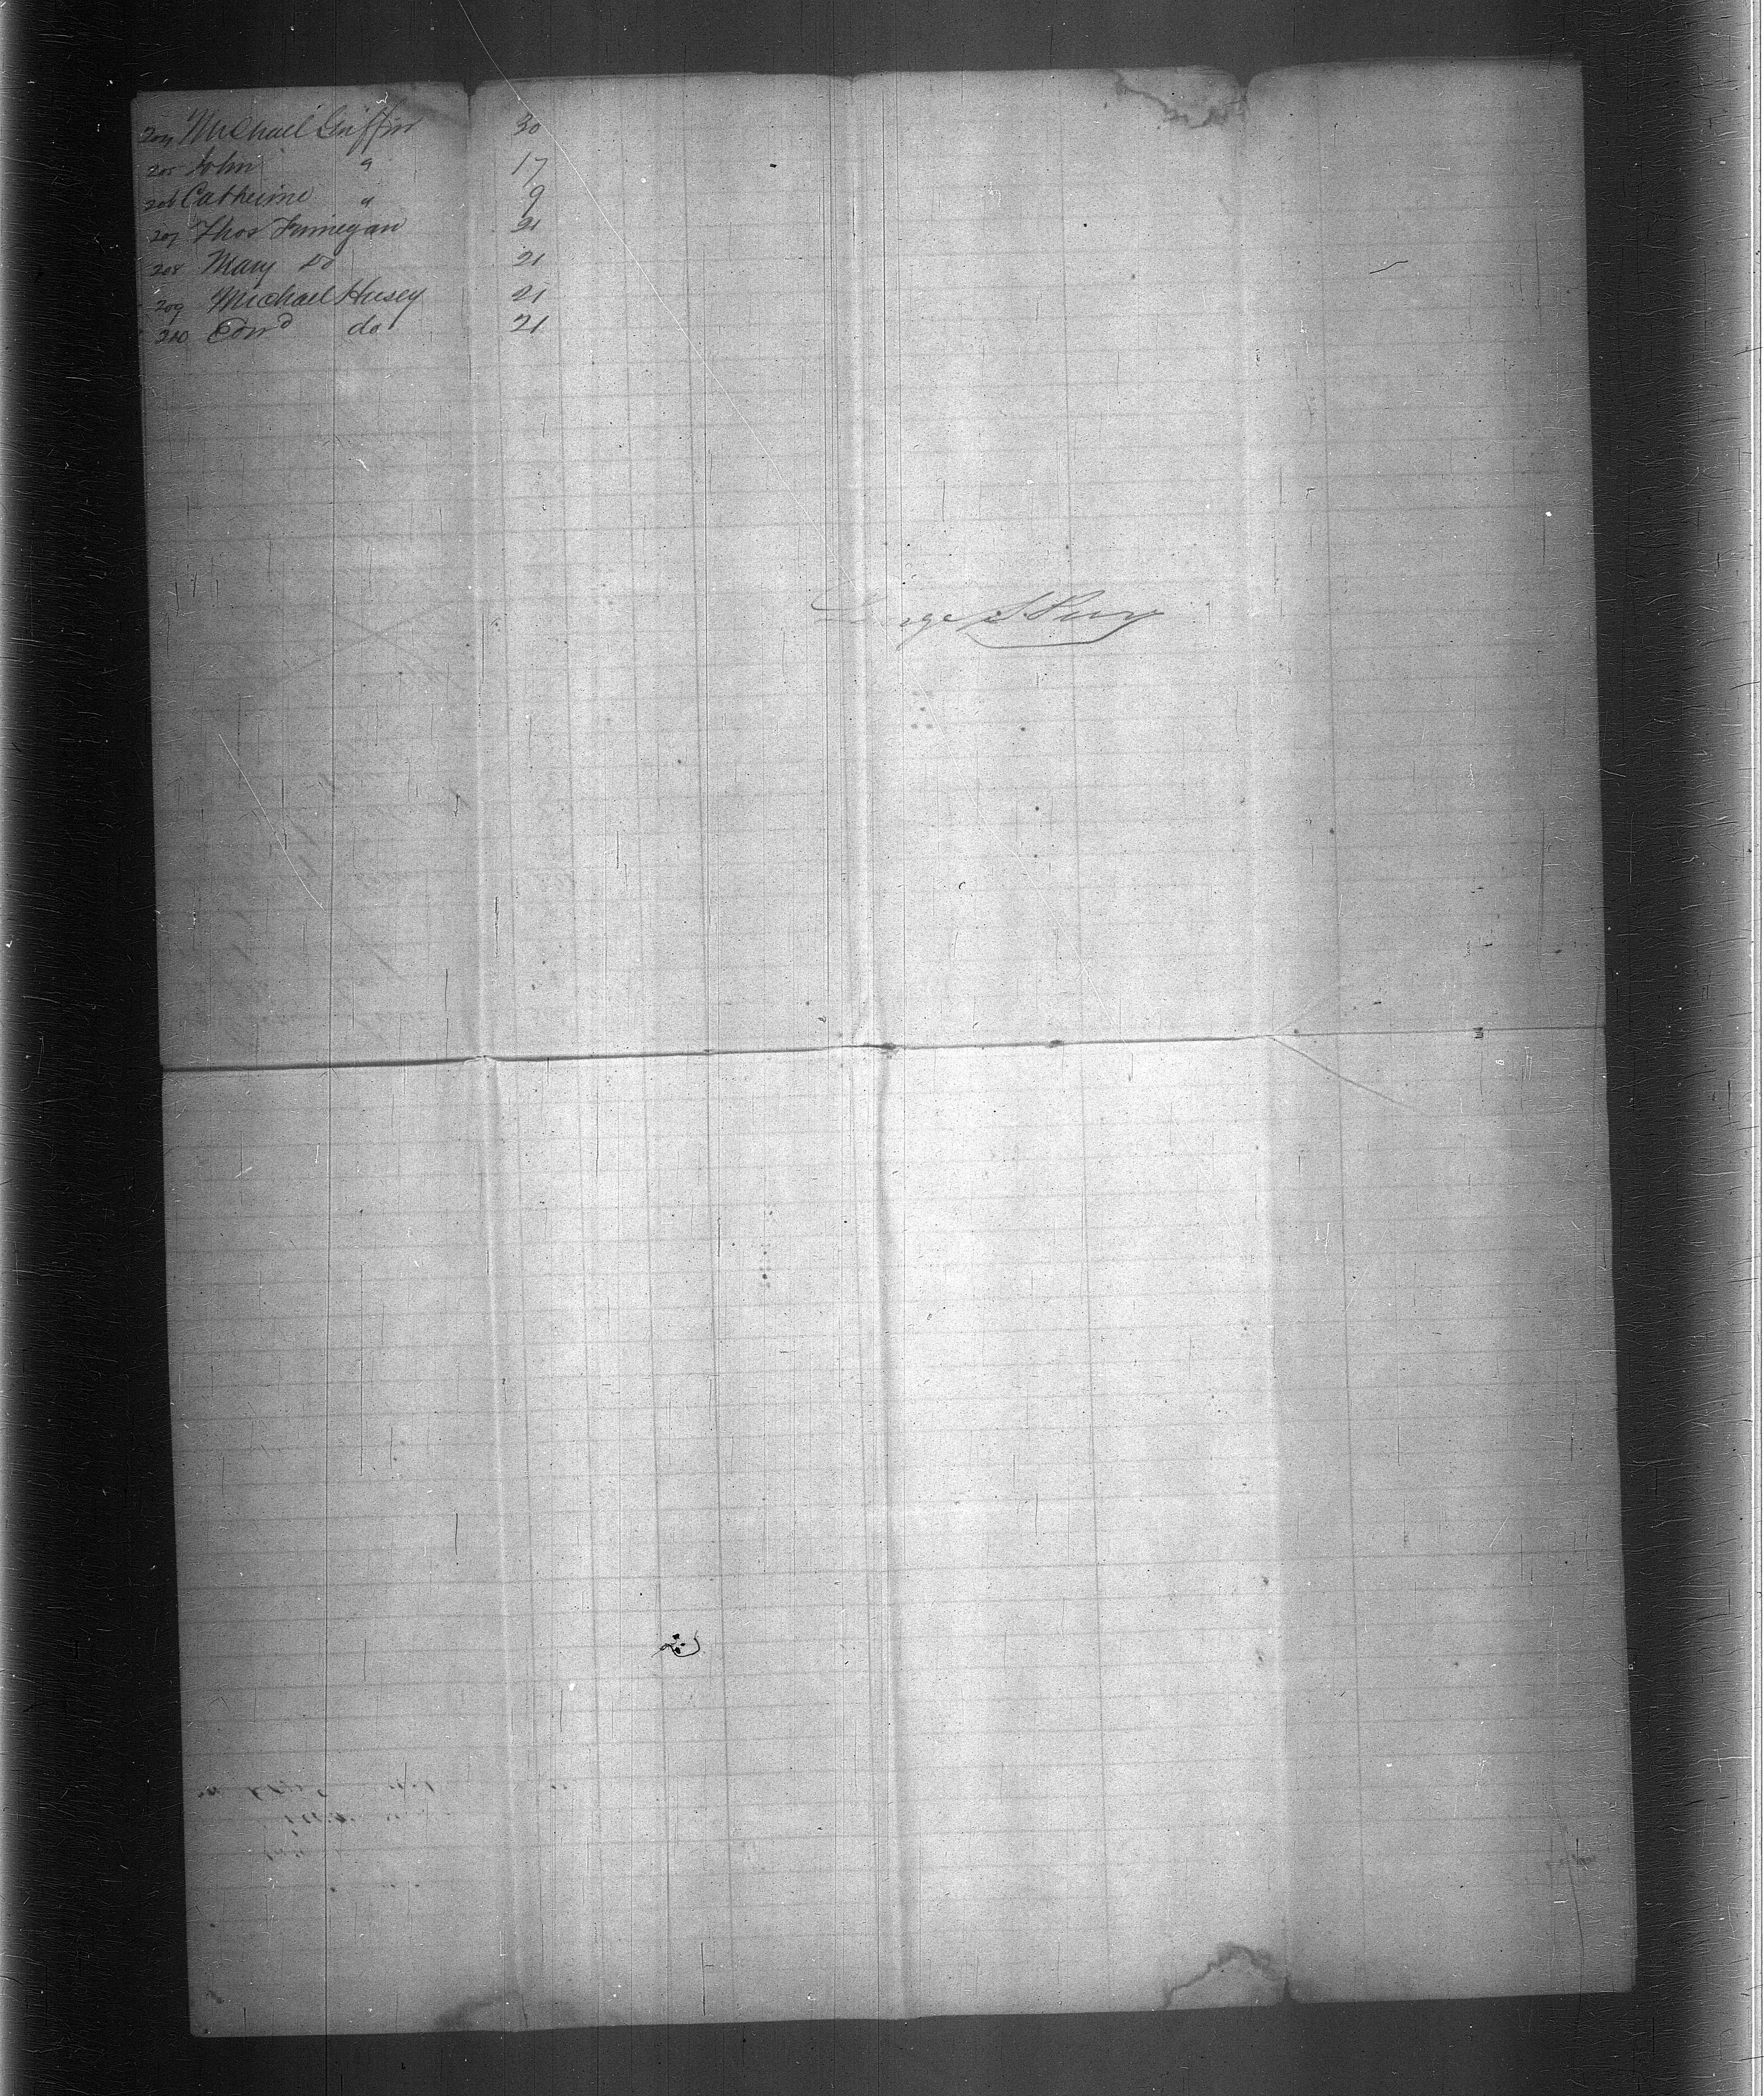 204 Michael Griffin 30
205 John " 17
206 Catherine " 9
207 Thos Finnegan 21
208 Mary do 21
209 Michael Husey 21
210 Edwd do 21
George S